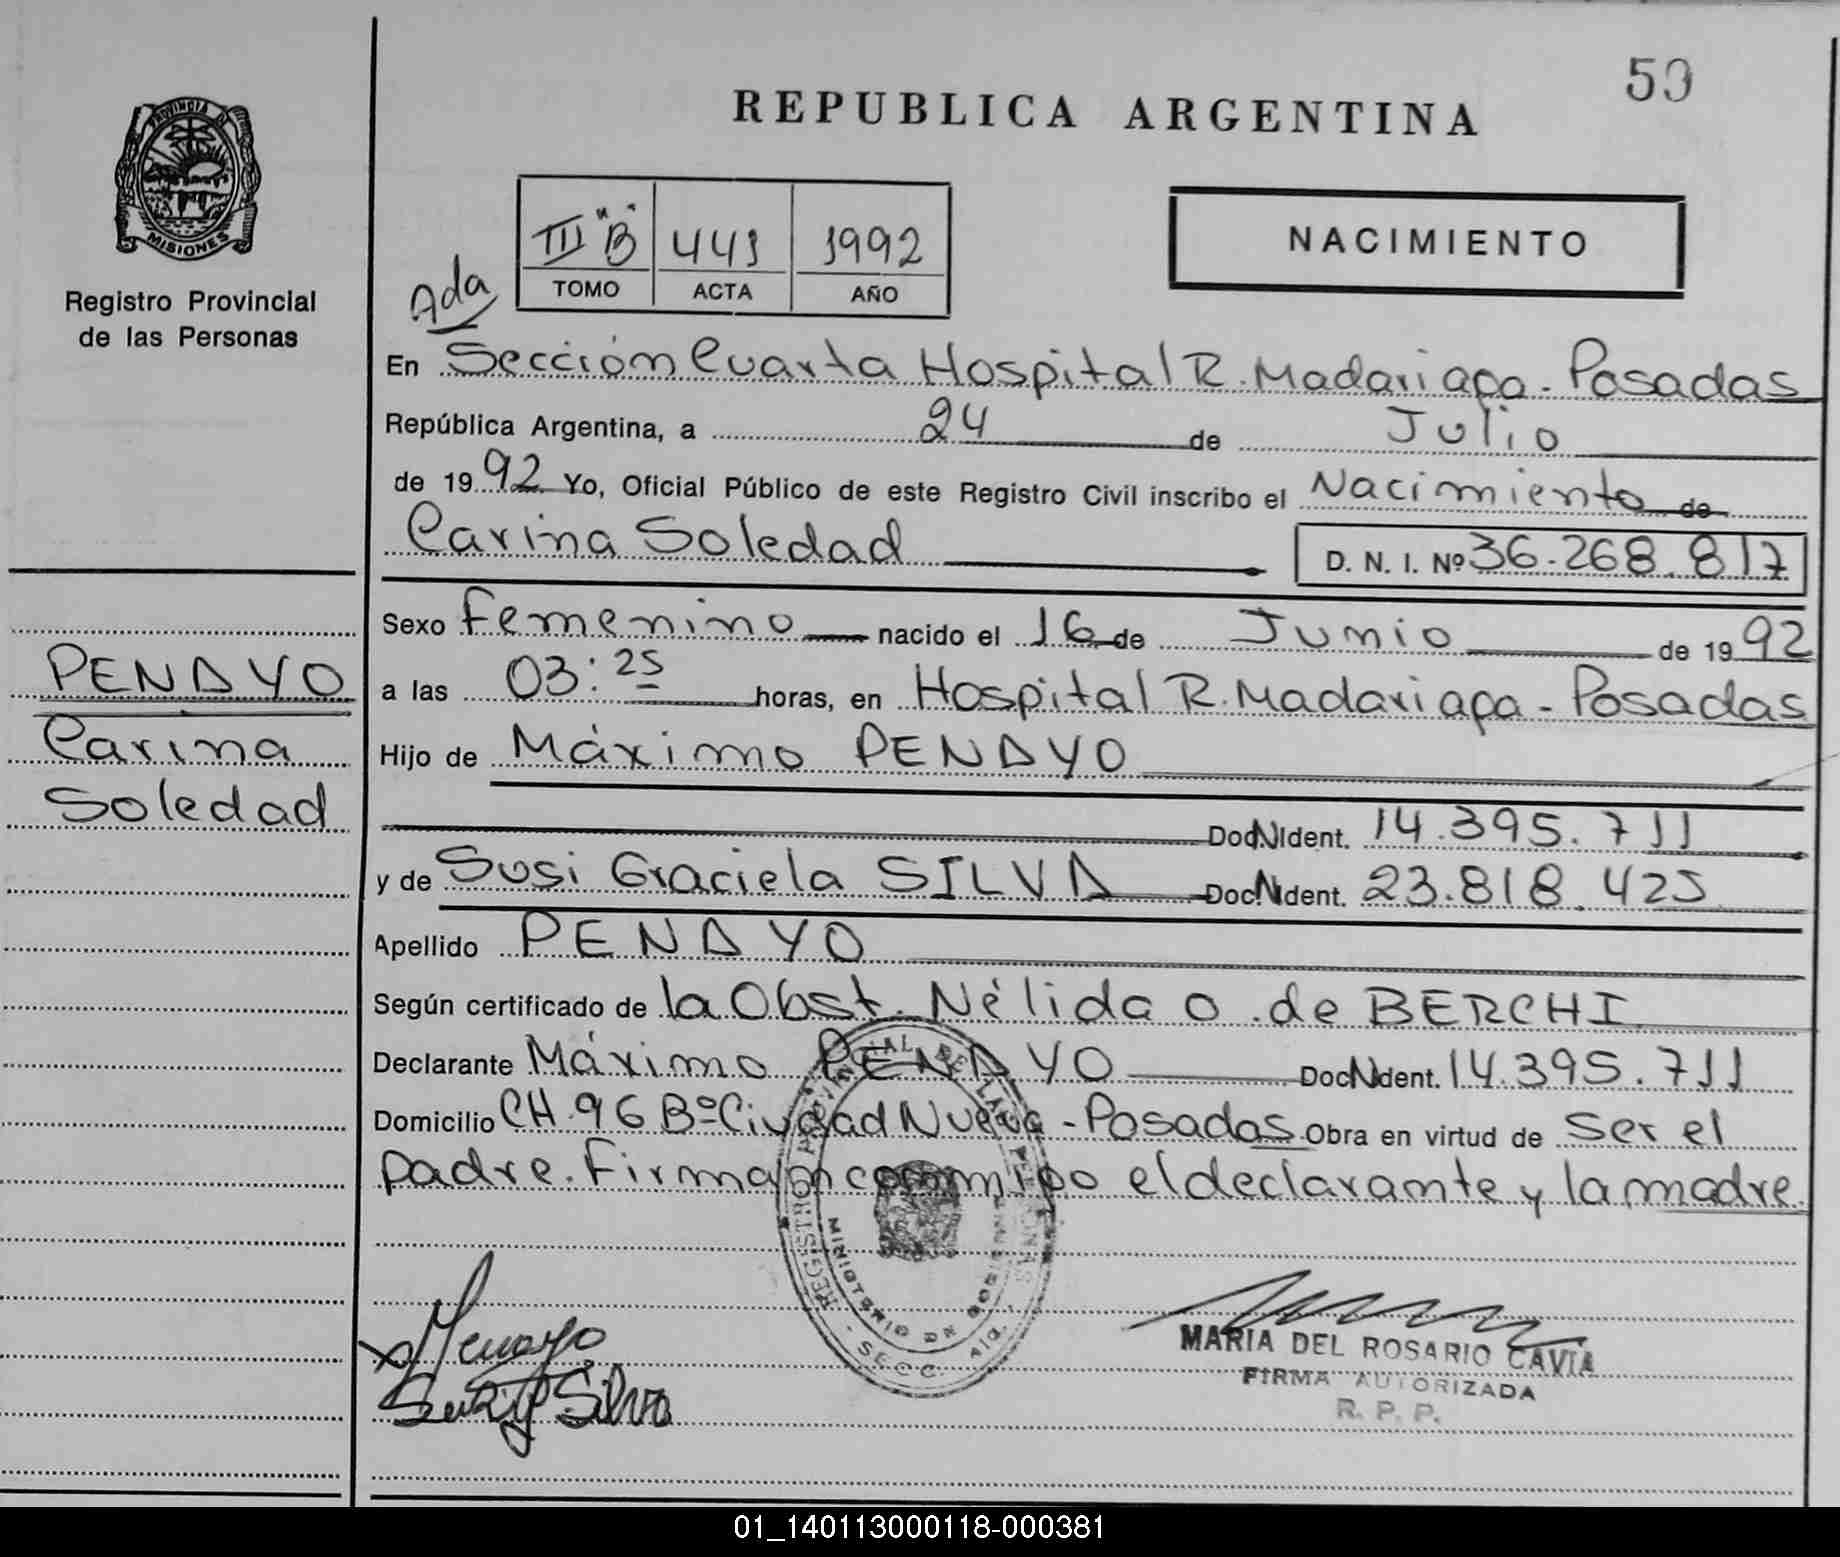 50
REPUBLICA ARGENTINA
PROVINCIA DE
MISIONES
Registro Provincial
de las Personas
NACIMIENTO
III "B" 441 1992
TOMO ACTA AÑO
Ada
En Sección Cuarta Hospital R. Madariaga - Posadas
República Argentina, a 24 de Julio
de 1992 Yo, Oficial Público de este Registro Civil inscribo el Nacimiento de
Carina Soledad D. N. I. Nº 36.268.817
Sexo Femenino nacido el 16 de Junio de 1992
a las 03:25 horas, en Hospital R. Madariaga - Posadas
Hijo de Máximo PENAYO
Doc.N.Ident. 14.395.711
y de Susi Graciela SILVA Doc.N.Ident. 23.818.425
Apellido PENAYO
Según certificado de la Obst. Nélida O. de BERCHI
Declarante Máximo PENAYO Doc.N.Ident. 14.395.711
Domicilio CH. 96 Bº Ciudad Nueva - Posadas Obra en virtud de ser el
padre. Firman conmigo el declarante y la madre.
PENAYO
Carina
Soledad
REGISTRO PROVINCIAL DE LAS PERSONAS
MINISTERIO DE GOBIERNO
SECC. 4ta.
Silva
MARIA DEL ROSARIO CAVIA
FIRMA AUTORIZADA
R. P. P.
01_140113000118-000381